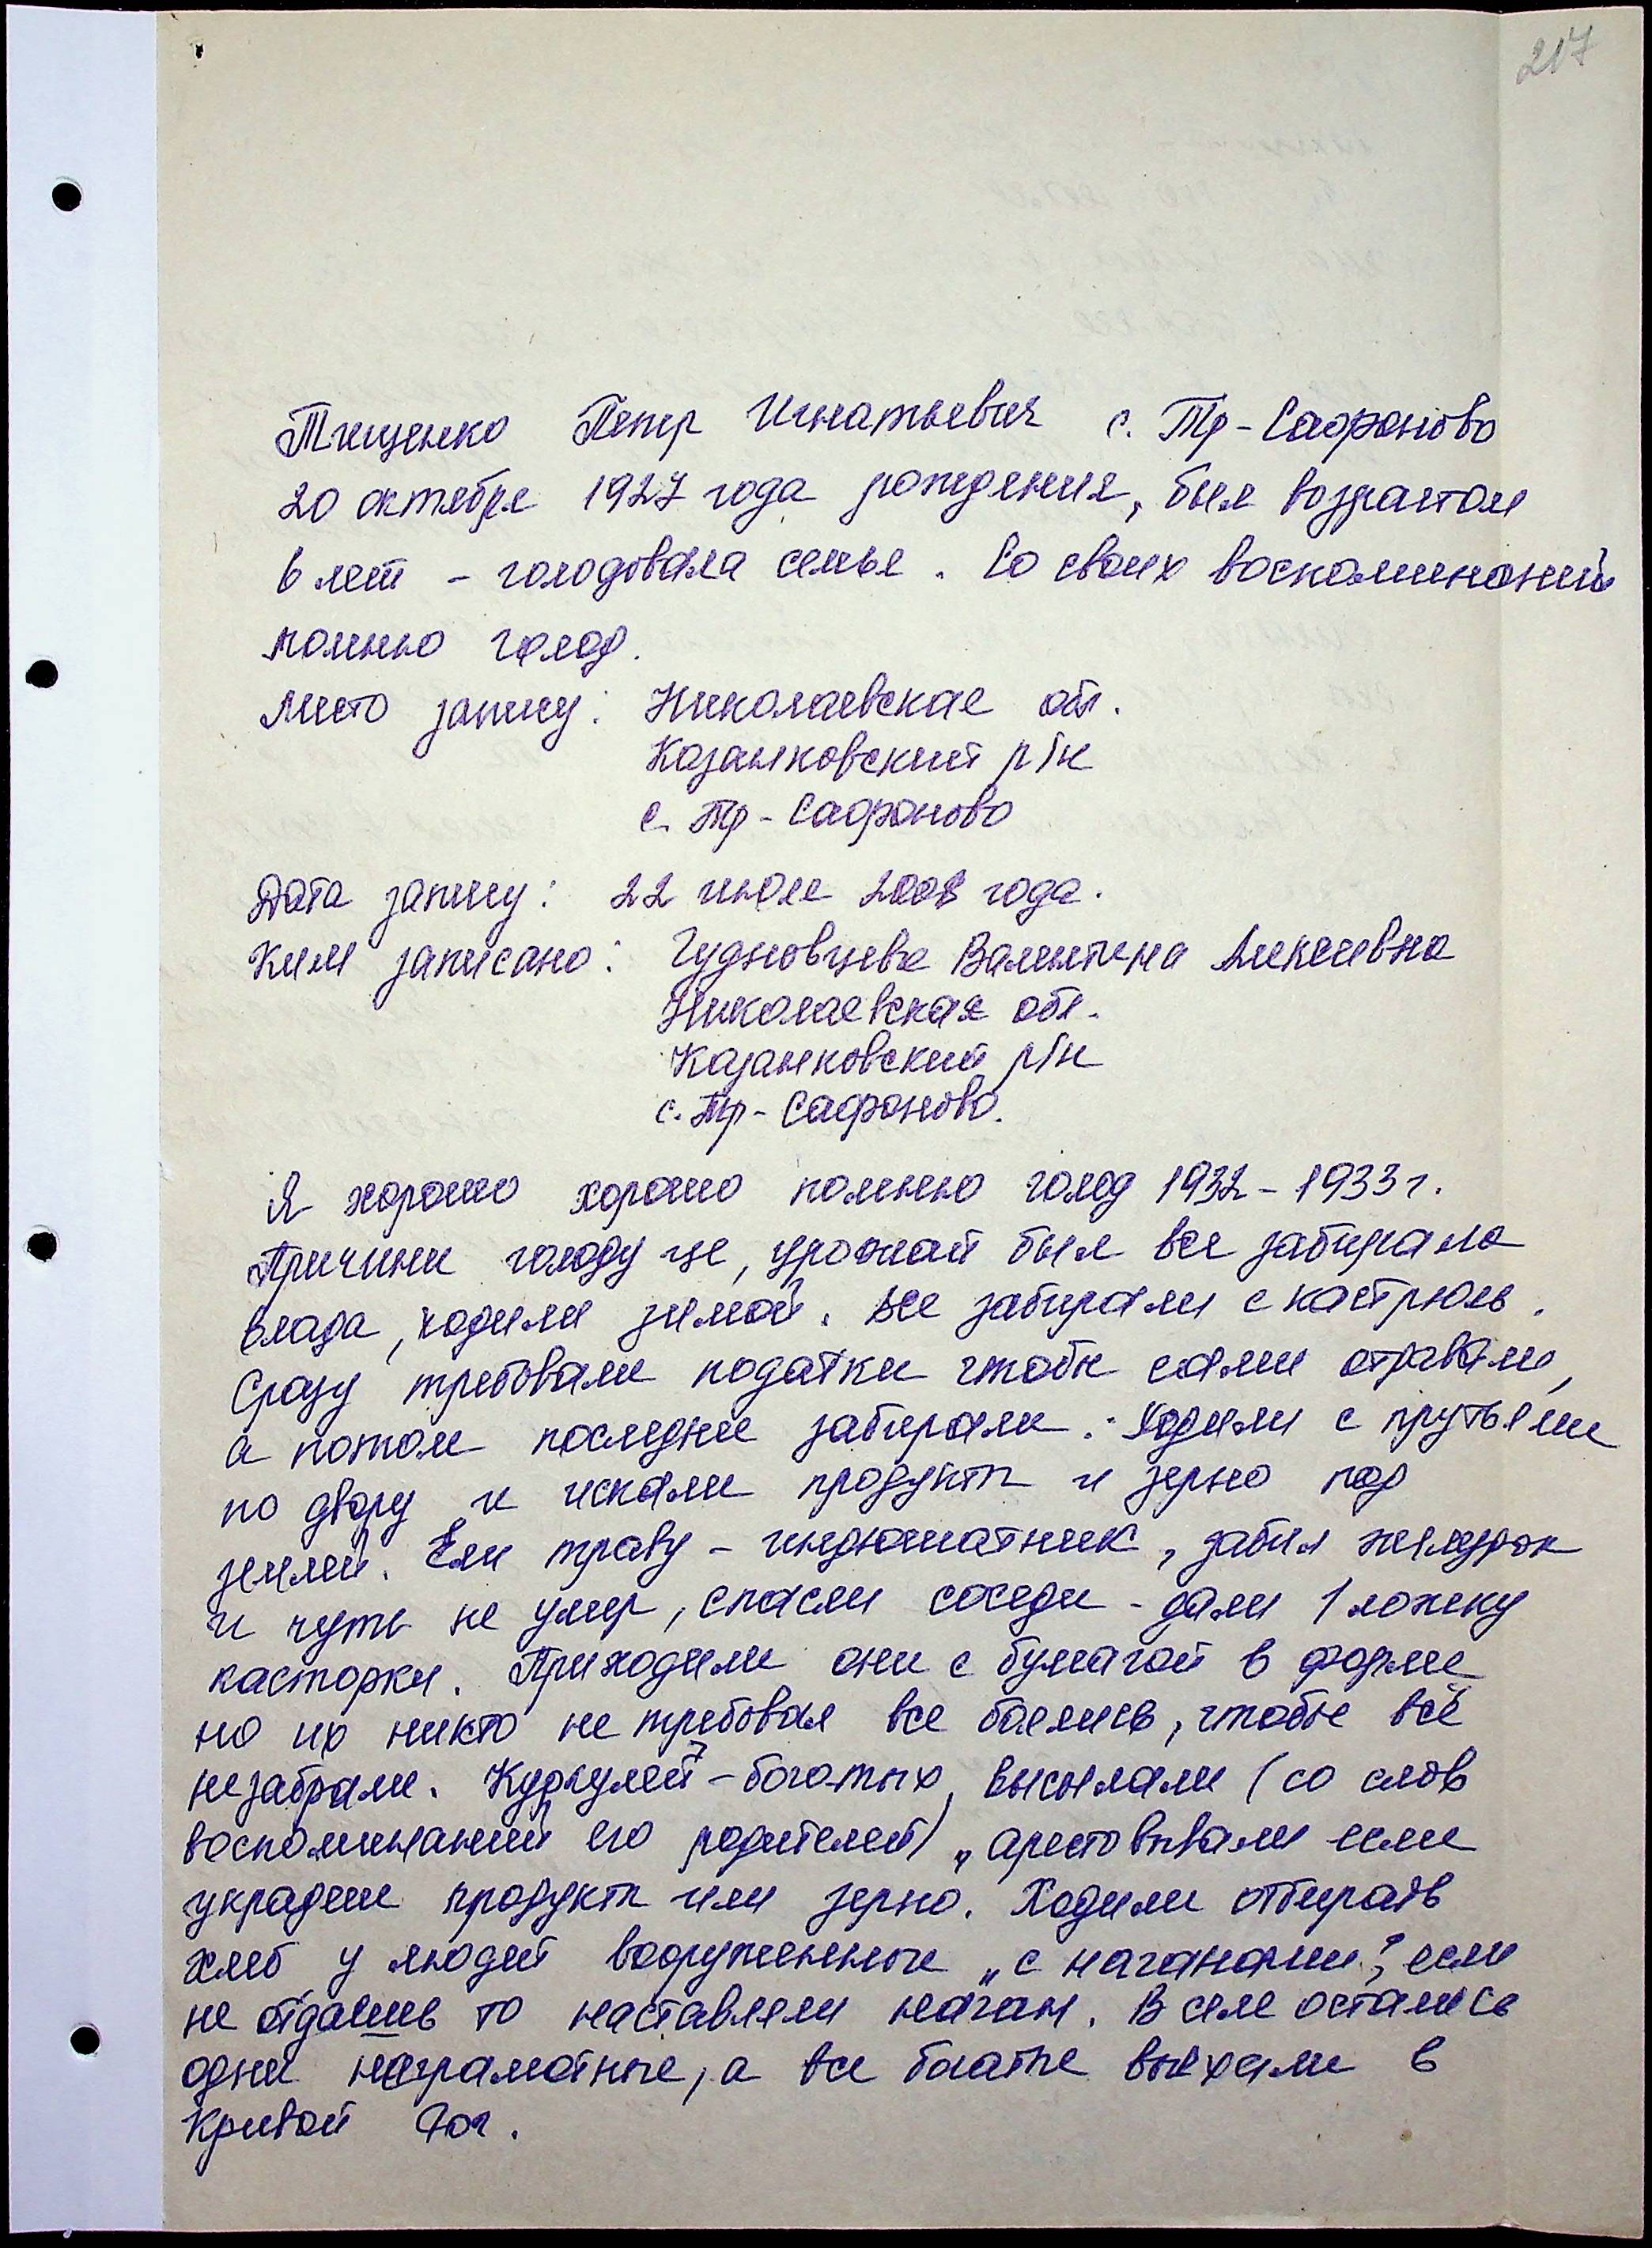 217
Тищенко Петр Игнатьевич с. Тр-Сафоново
20 октября 1927 года рождения, был возрастом
6 лет - голодовала семья. Со своих воспоминаний
помню голод.
Место запису: Николаевская обл.
Казанковский р/н
с. Тр-Сафоново
Дата запису: 22 июля 2008 года.
Ким записано: Валентина Алексеевна
Николаевская обл.
Казанковский р/н
с. Тр-Сафоново.
Я хорошо хорошо помню голод 1932-1933 г.
Причини голоду це, урожай был все забирала
влада, ходили зимой. Все забирали с кастрюль.
Сразу требовали податки чтобы сами отдавали,
а потом последнее забирали. Ходили с прутьями
по двору и искали продукты и зерно под
землей. Ели траву - индюшатник, забил желудок
и чуть не умер, спасли соседи - дали 1 ложку
касторки. Приходили они с бумагой в форме
но их никто не требовал все боялись, чтобы всё
незабрали. Куркулей - богатых, высылали (со слов
воспоминаний его родителей), арестовывали если
украдеш продукты или зерно. Ходили отбирать
хлеб у людей вооруженные „с наганами", если
не отдаешь то наставляли наган. В селе остались
одни неграмотные, а все богатые выехали в
Кривой Рог.